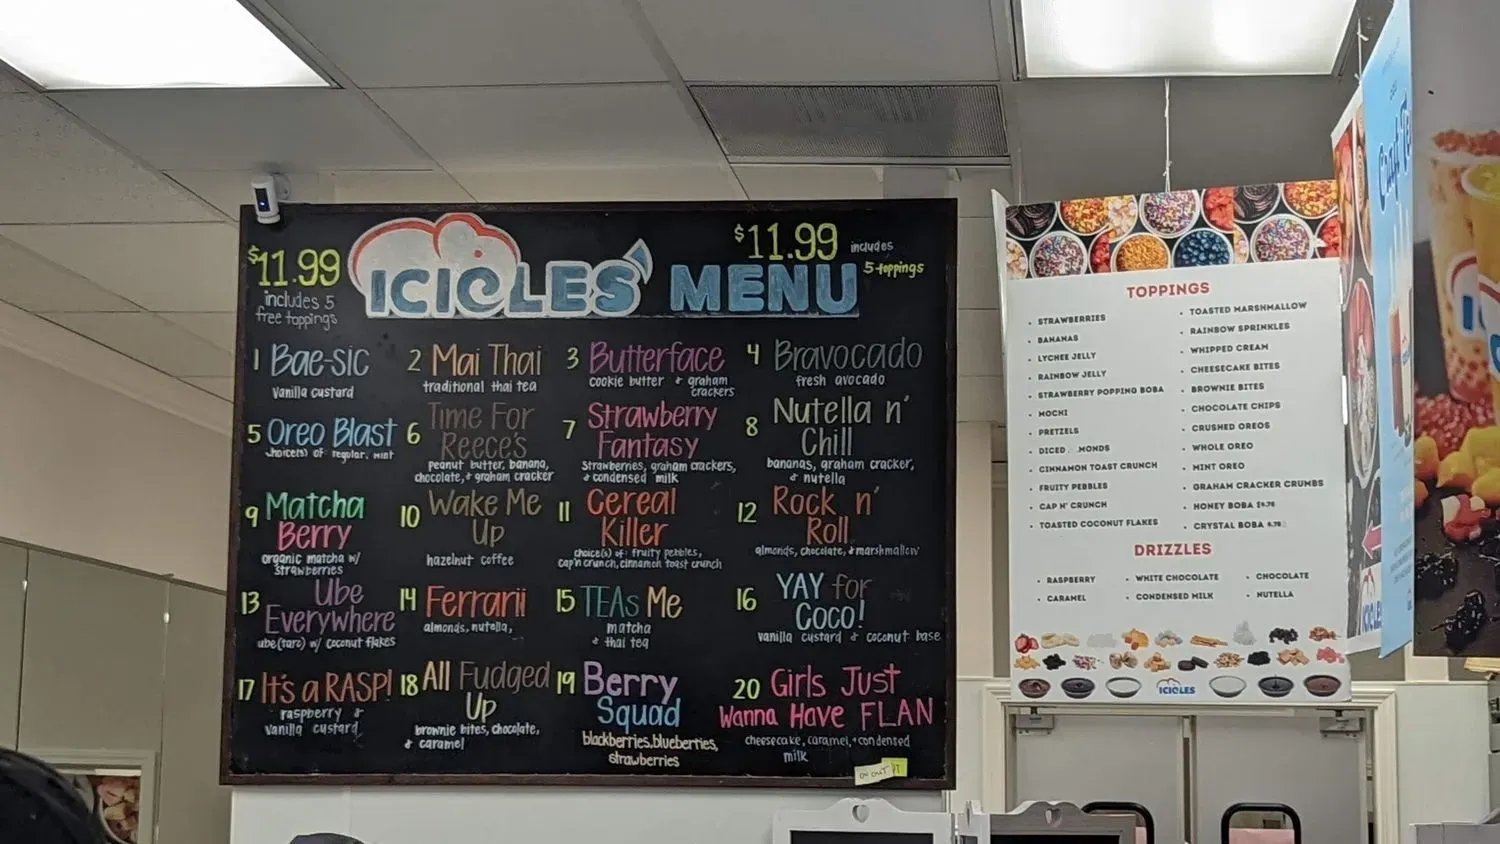 $11.99
includes 5
free toppings
ICICLES' MENU
$11.99 includes
5 toppings
1 Bae-sic
Vanilla custard
2 Mai Thai
traditional thai tea
3 Butterface
cookie butter & graham
crackers
4 Bravocado
fresh avocado
5 Oreo Blast
choice(s) of regular, mint
6 Time For
Reece's
peanut butter, banana,
chocolate, & graham cracker
7 Strawberry
Fantasy
Strawberries, graham crackers,
& condensed milk
8 Nutella n'
Chill
bananas, graham cracker,
& nutella
9 Matcha
Berry
organic matcha w/
Strawberries
10 Wake Me
Up
hazelnut coffee
11 Cereal
Killer
choice(s) of: fruity pebbles,
cap'n crunch, cinnamon toast crunch
12 Rock n'
Roll
almonds, chocolate, & marshmallow
13 Ube
Everywhere
ube (taro) w/ coconut flakes
14 Ferrarii
almonds, nutella,
15 TEAs Me
matcha
& thai tea
16 YAY for
Coco!
vanilla custard & coconut base
17 It's a RASP!
raspberry &
vanilla custard
18 All Fudged
Up
brownie bites, chocolate,
& caramel
19 Berry
Squad
blackberries, blueberries,
strawberries
20 Girls Just
Wanna Have FLAN
cheesecake, caramel, + condensed
milk
TOPPINGS
• STRAWBERRIES
• BANANAS
• LYCHEE JELLY
• RAINBOW JELLY
• STRAWBERRY POPPING BOBA
• MOCHI
• PRETZELS
• DICED MONDS
• CINNAMON TOAST CRUNCH
• FRUITY PEBBLES
• CAP N' CRUNCH
• TOASTED COCONUT FLAKES
• TOASTED MARSHMALLOW
• RAINBOW SPRINKLES
• WHIPPED CREAM
• CHEESECAKE BITES
• BROWNIE BITES
• CHOCOLATE CHIPS
• CRUSHED OREOS
• WHOLE OREO
• MINT OREO
• GRAHAM CRACKER CRUMBS
• HONEY BOBA
• CRYSTAL BOBA
DRIZZLES
• RASPBERRY
• CARAMEL
• WHITE CHOCOLATE
• CONDENSED MILK
• CHOCOLATE
• NUTELLA
ICICLES